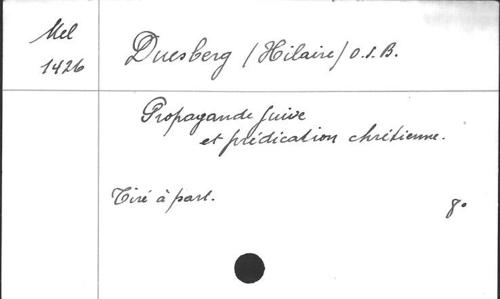 Mel
1426
Duesberg (Hilaire) O.S.B.
Propagande juive
et prédication chrétienne.
Tiré à part.
8°